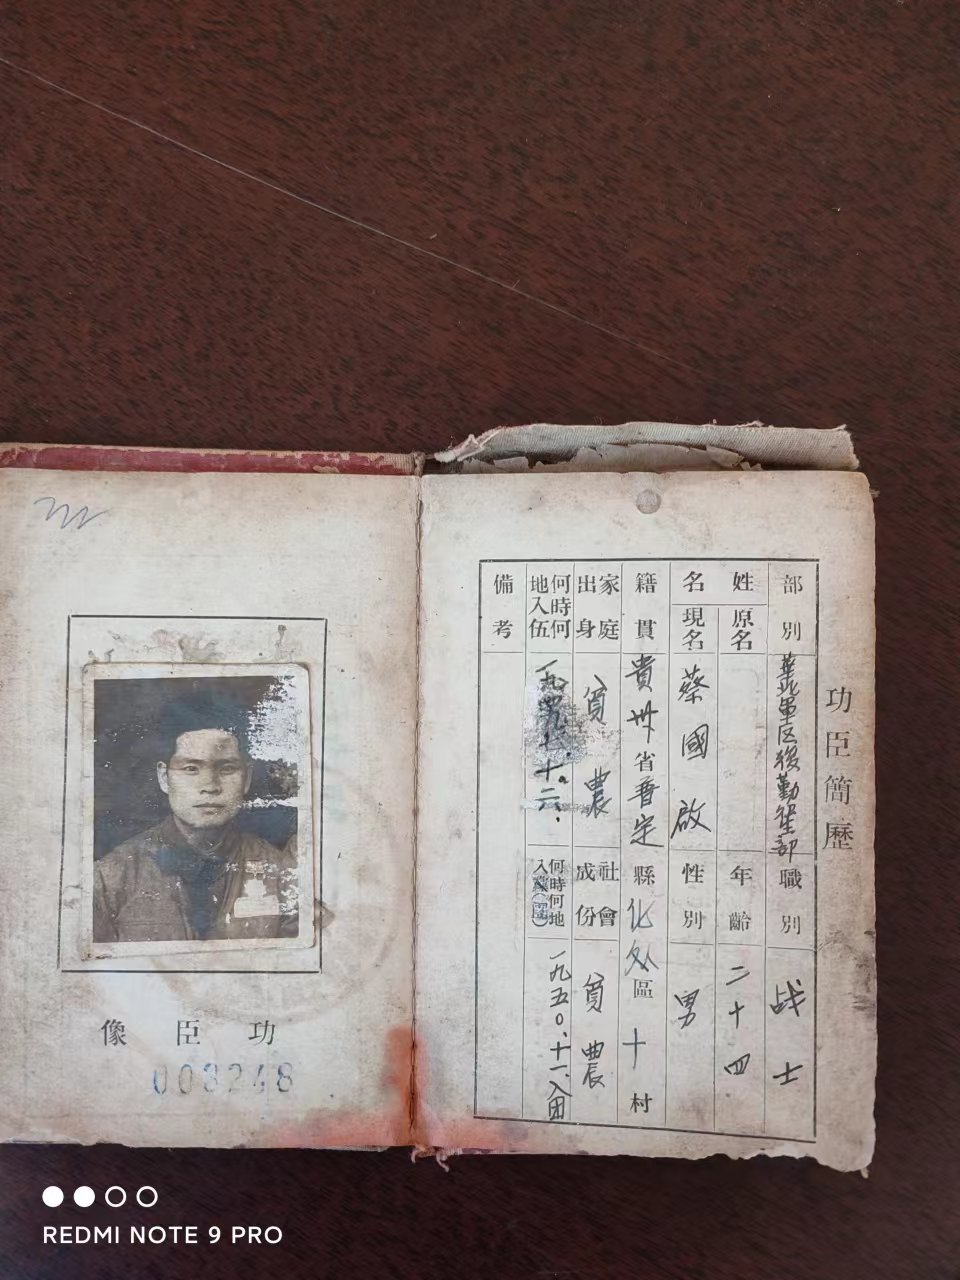 功臣簡歷
部別
華北軍区後勤衛部
職別
战士
姓名
原名
現名
蔡國啟
年齡
二十四
性別
男
籍貫
貴州省普定縣化处區十村
家庭出身
貧農
社會成份
貧農
何時何地入伍
一九四九.十.六.
何時何地入黨(團)
一九五〇.十一.入团
備考
功臣像
008248
REDMI NOTE 9 PRO